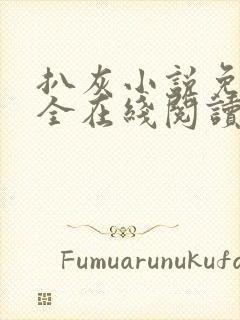 扒灰小説免
全在綫閱讀
Fumuarunukufa